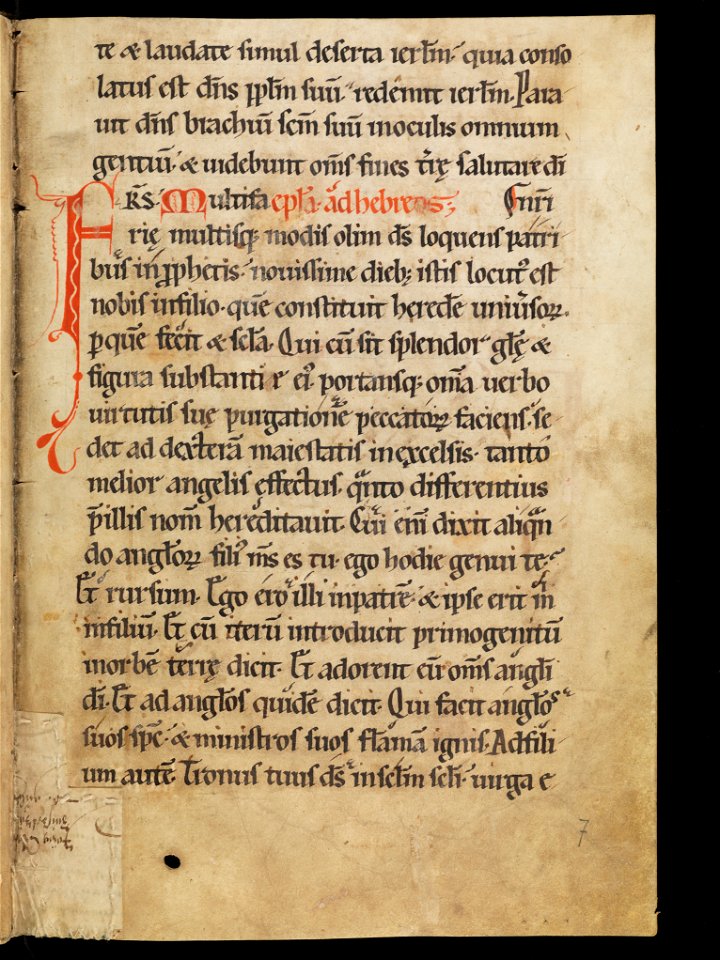 te & laudate simul deserta ierlm̄· quia conso
latus est dn̄s pplm̄ suū· redemit ierlm̄. Para
uit dn̄s brachiū scm̄ suū inoculis omnium
gentiū· & uidebunt om̄s fines tr̄ę salutare dī
FR̄S· Multifa epl̄a· ad hebreos; Gm̄ri
rię multisq; modis olim ds̄ loquens patri
bus in prophetis· nouissime dieb; istis locut᷒ est
nobis infilio· quē constituit heredē uniūsoꝝ.
ꝑ quē fecit & scl̄a· Qui cū sit splendor gl̄ę &
figura substantię ei᷒ portansq; om̄a uerbo
uirtutis suę purgationē peccatoꝝ faciens· se
det ad dexterā maiestatis in excelsis· tanto
melior angelis effectus· qͣnto differentius
p̄ illis nom̄ hereditauit. Cui enī dixit aliqn̄
do angl̄oꝝ fili᷒ m̄s es tu· ego hodie genui te·
Et rursum· Ego ero illi inpatrē· & ipse erit m̄
infiliū· Et cū iterū introducit primogenitū
inorbē terrę dicit· Et adorent eū om̄s angl̄i
dī. Et ad angl̄os quidē dicit· Qui facit angl̄os
suos sp̄c· & ministros suos flāmā ignis. Ad fili
um autē· Tronus tuus ds̄ in scl̄m scl̄i· uirga e
7